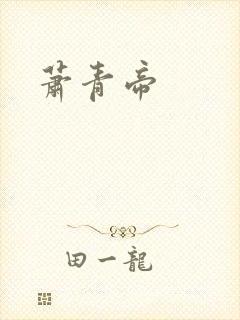 蕭青帝
田一龍